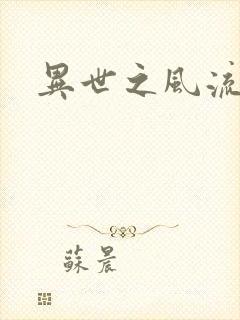 異世之風流
蘇晨